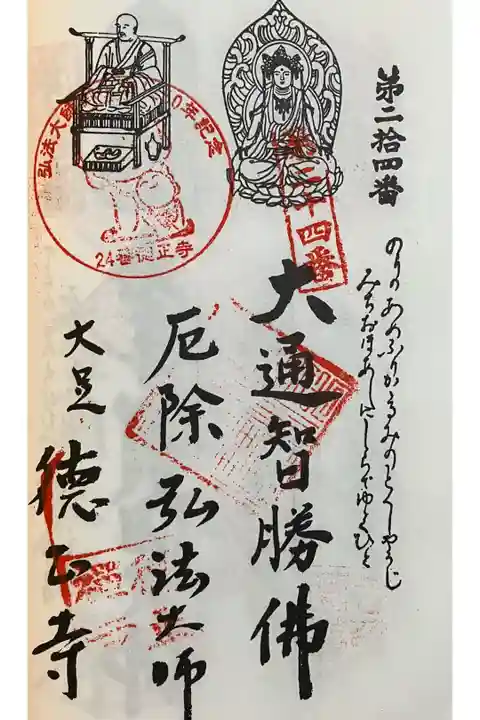 第二拾四番
のりのあめふりかゝるみのとくしやうじ
みちおほあしに
第二十四番
大通智勝佛
厄除弘法大師
大足徳正寺
弘法大師 0年記念
24番徳正寺